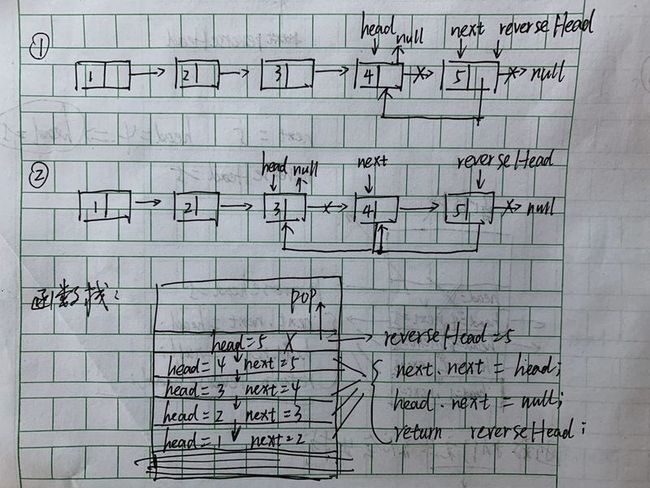 ①
head null next reverseHead
1 2 3 4 5 null
②
head null next reverseHead
1 2 3 4 5 null
函数栈:
POP
head=5 X reverseHead=5
head=4 next=5
head=3 next=4
head=2 next=3
head=1 next=2
next.next = head;
head.next = null;
return reverseHead;